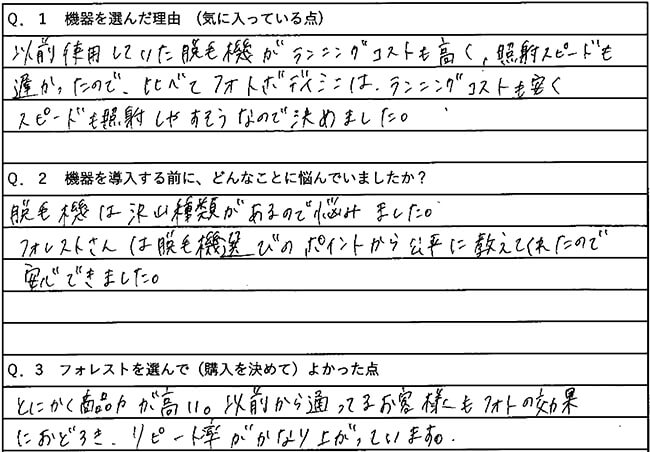 Q．１　機器を選んだ理由　（気に入っている点）
以前使用していた脱毛機がランニングコストも高く，照射スピードも
遅かったので、比べてフォトボディミニは、ランニングコストも安く
スピードも照射しやすそうなので決めました。
Q．２　機器を導入する前に、どんなことに悩んでいましたか？
脱毛機は沢山種類があるので悩みました。
フォレストさんは脱毛機選びのポイントから公平に教えてくれたので
安心できました。
Q．３　フォレストを選んで（購入を決めて）よかった点
とにかく商品力が高い。以前から通ってるお客様にもフォトの効果
におどろき、リピート率がかなり上がっています。